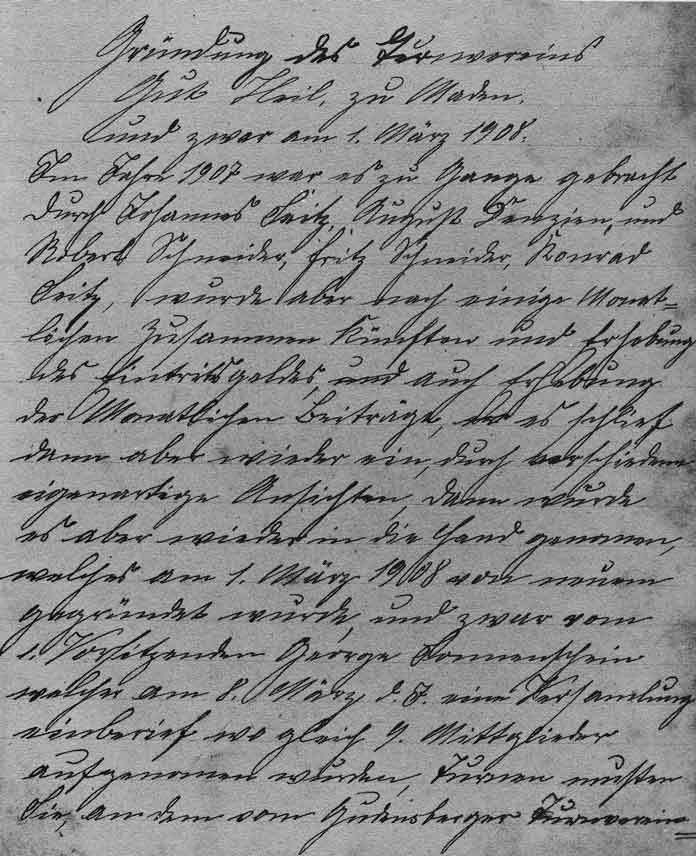 Gründung des Turnvereins
Gut Heil, zu Maden.
und zwar am 1. März 1908.
Im Jahre 1907 war es zu Gange gebracht
durch Johannes Seitz, August Denzien, und
Robert Schneider, Fritz Schneider, Konrad
Seitz, wurde aber nach einige Monat=
lichen Zusammen Künften und Erhebung
des Eintrittsgeldes, und auch Erhebung
der Monatlichen Beiträge, es schlief
dann aber wieder ein, durch verschiedene
eigenartige Ansichten, dann wurde
es aber wieder in die Hand genomen,
welches am 1. März 1908 von neuem
gegründet wurde, und zwar vom
1. Vorsitzenden George Sonnenschein
welcher am 8. März d. J. eine Versamlung
einberief wo gleich 9. Mittglieder
aufgenomen wurden, Turnen mußten
Sie, an dem vom Gudensberger Turnverein